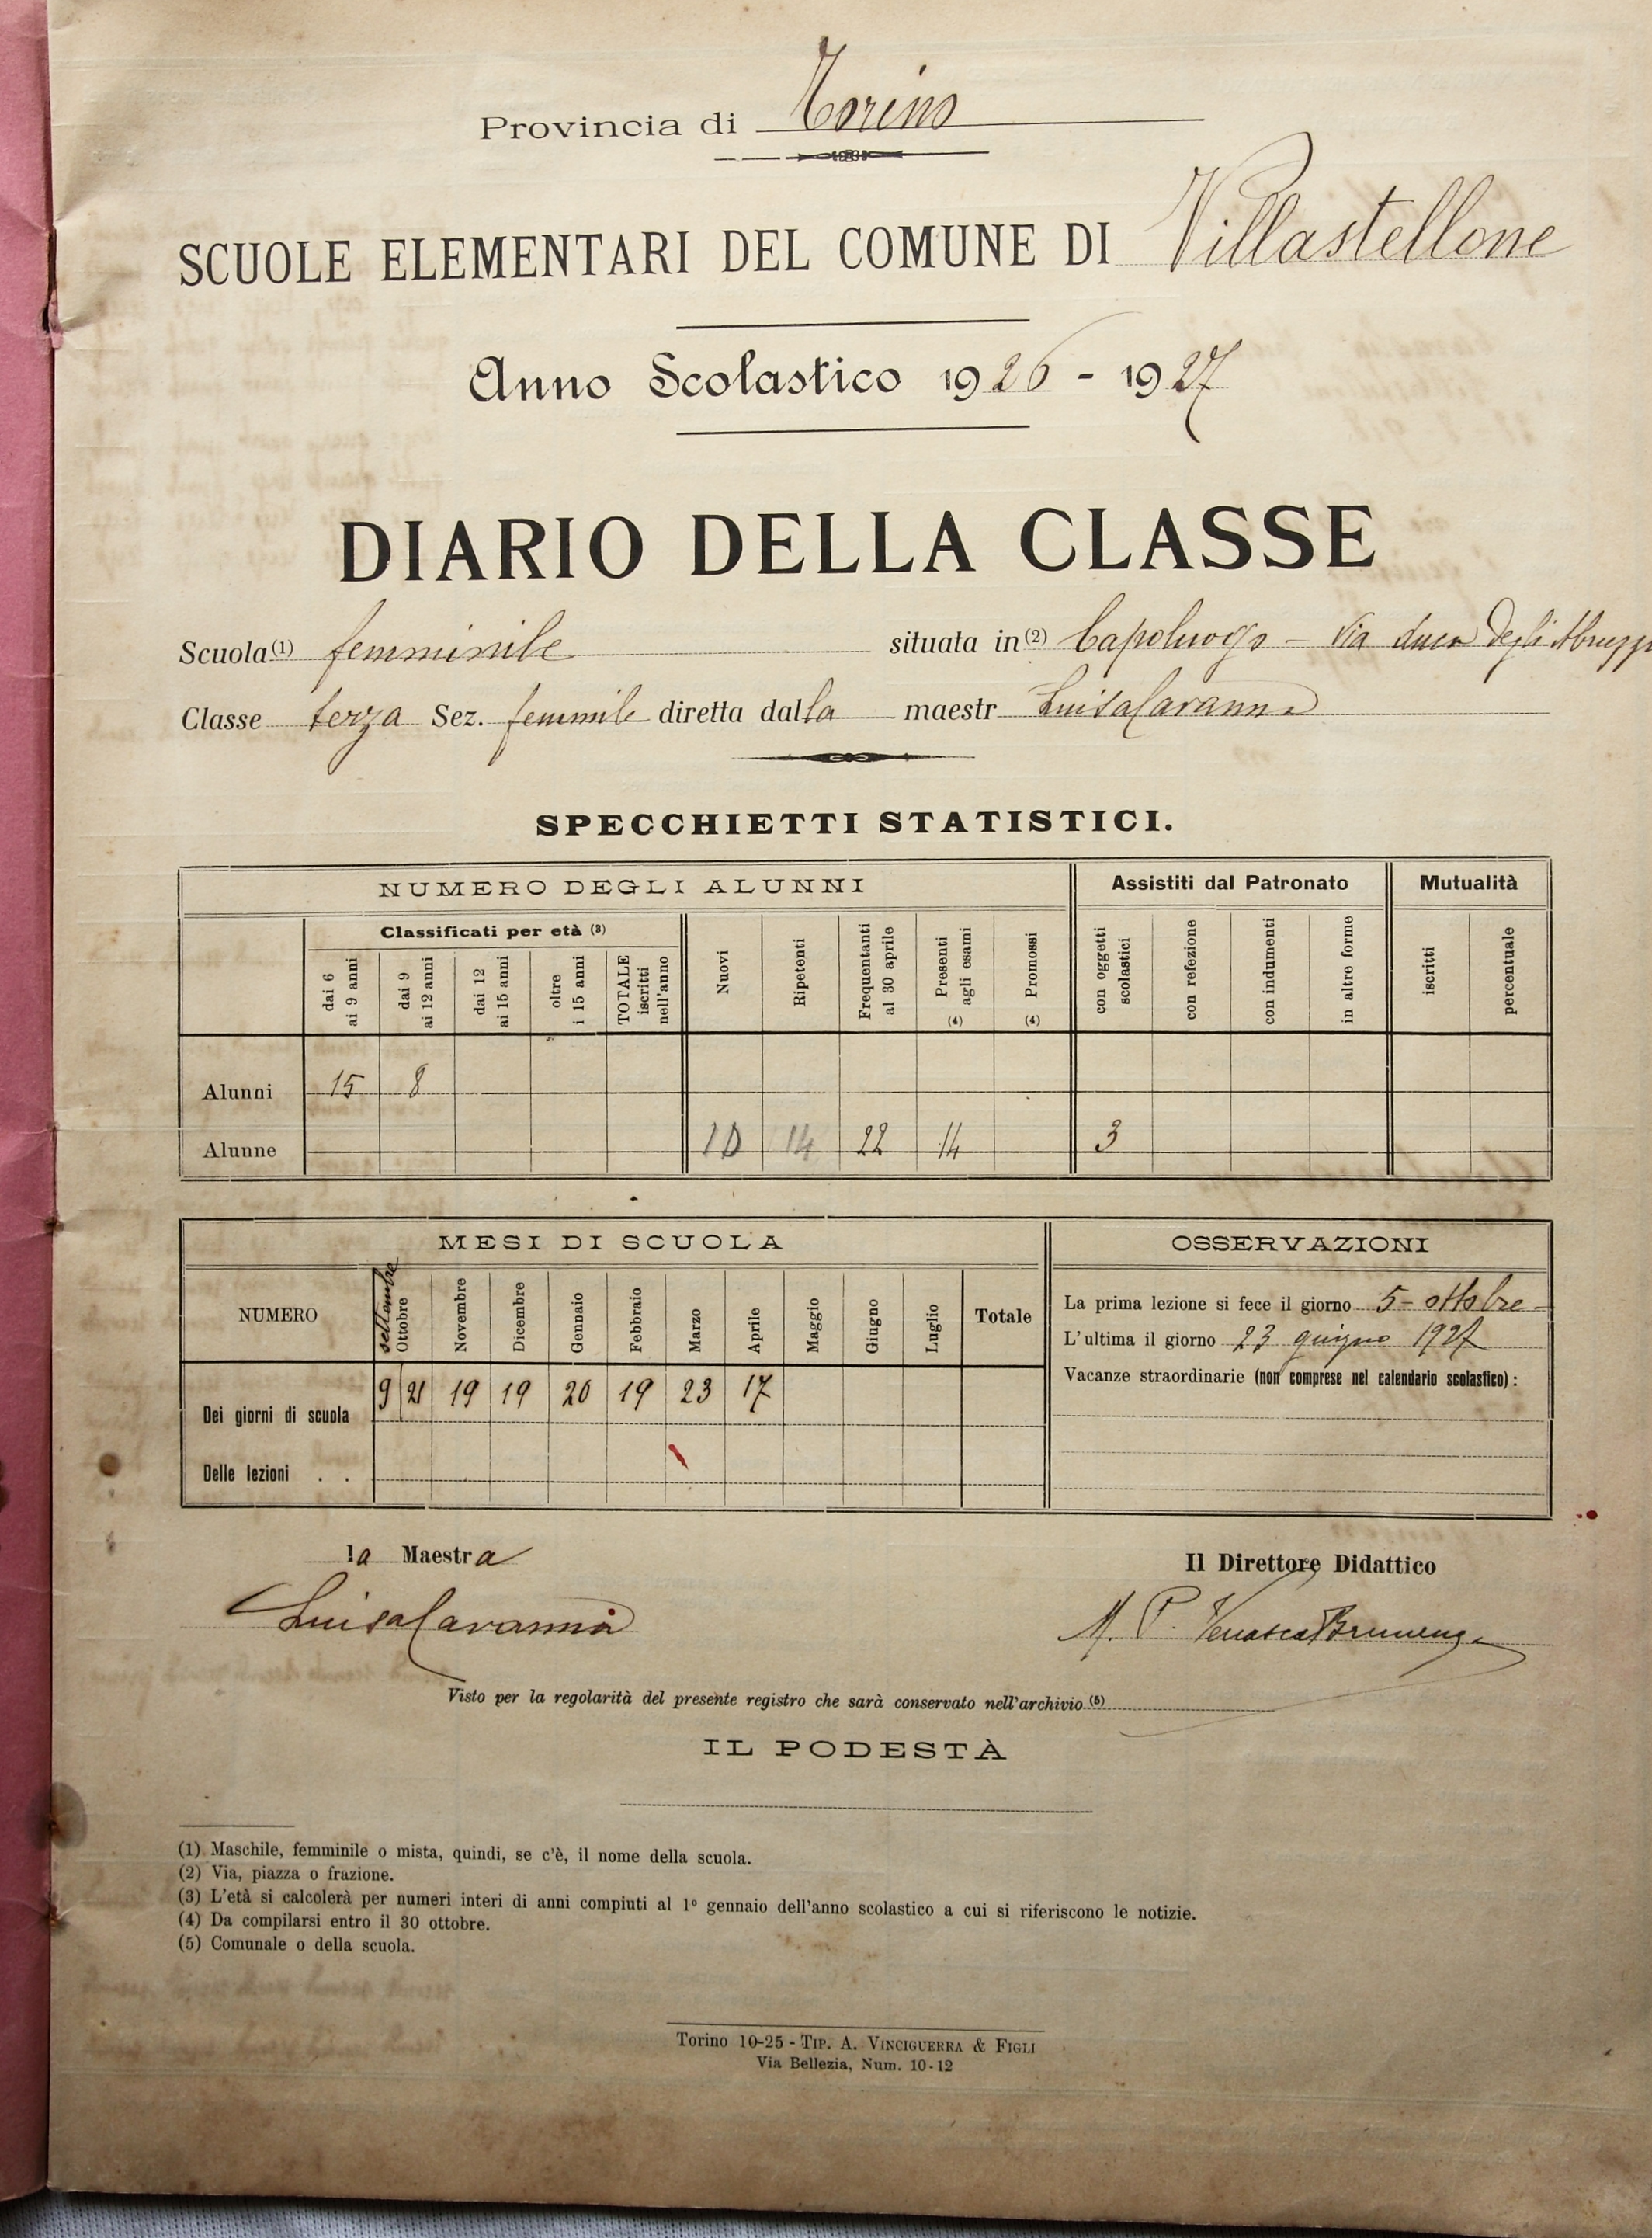 Provincia di Torino
SCUOLE ELEMENTARI DEL COMUNE DI Villastellone
Anno Scolastico 1926 - 1927
DIARIO DELLA CLASSE
Scuola (1) femminile situata in (2) Capoluogo - Via duca Degli Abruzzi
Classe terza Sez. femmile diretta dalla maestr Luisa Cavanna
SPECCHIETTI STATISTICI.
NUMERO DEGLI ALUNNI Assistiti dal Patronato Mutualità
Classificati per età (3)
dai 6 ai 9 anni dai 9 ai 12 anni dai 12 ai 15 anni oltre i 15 anni TOTALE iscritti nell'anno Nuovi Ripetenti Frequentanti al 30 aprile (4) Presenti agli esami (4) Promossi con oggetti scolastici con refezione con indumenti in altre forme iscritti percentuale
Alunni 15 8
Alunne 10 14 22 14 3
MESI DI SCUOLA OSSERVAZIONI
NUMERO settembre Ottobre Novembre Dicembre Gennaio Febbraio Marzo Aprile Maggio Giugno Luglio Totale
La prima lezione si fece il giorno 5 - ottobre -
L'ultima il giorno 23 giugno 1927
Vacanze straordinarie (non comprese nel calendario scolastico) :
Dei giorni di scuola 9 21 19 19 20 19 23 17
Delle lezioni . .
la Maestra Il Direttore Didattico
Luisa Cavanna M. P.
Visto per la regolarità del presente registro che sarà conservato nell'archivio (5)
IL PODESTÀ
(1) Maschile, femminile o mista, quindi, se c'è, il nome della scuola.
(2) Via, piazza o frazione.
(3) L'età si calcolerà per numeri interi di anni compiuti al 1º gennaio dell'anno scolastico a cui si riferiscono le notizie.
(4) Da compilarsi entro il 30 ottobre.
(5) Comunale o della scuola.
Torino 10-25 - TIP. A. VINCIGUERRA & FIGLI
Via Bellezia, Num. 10-12